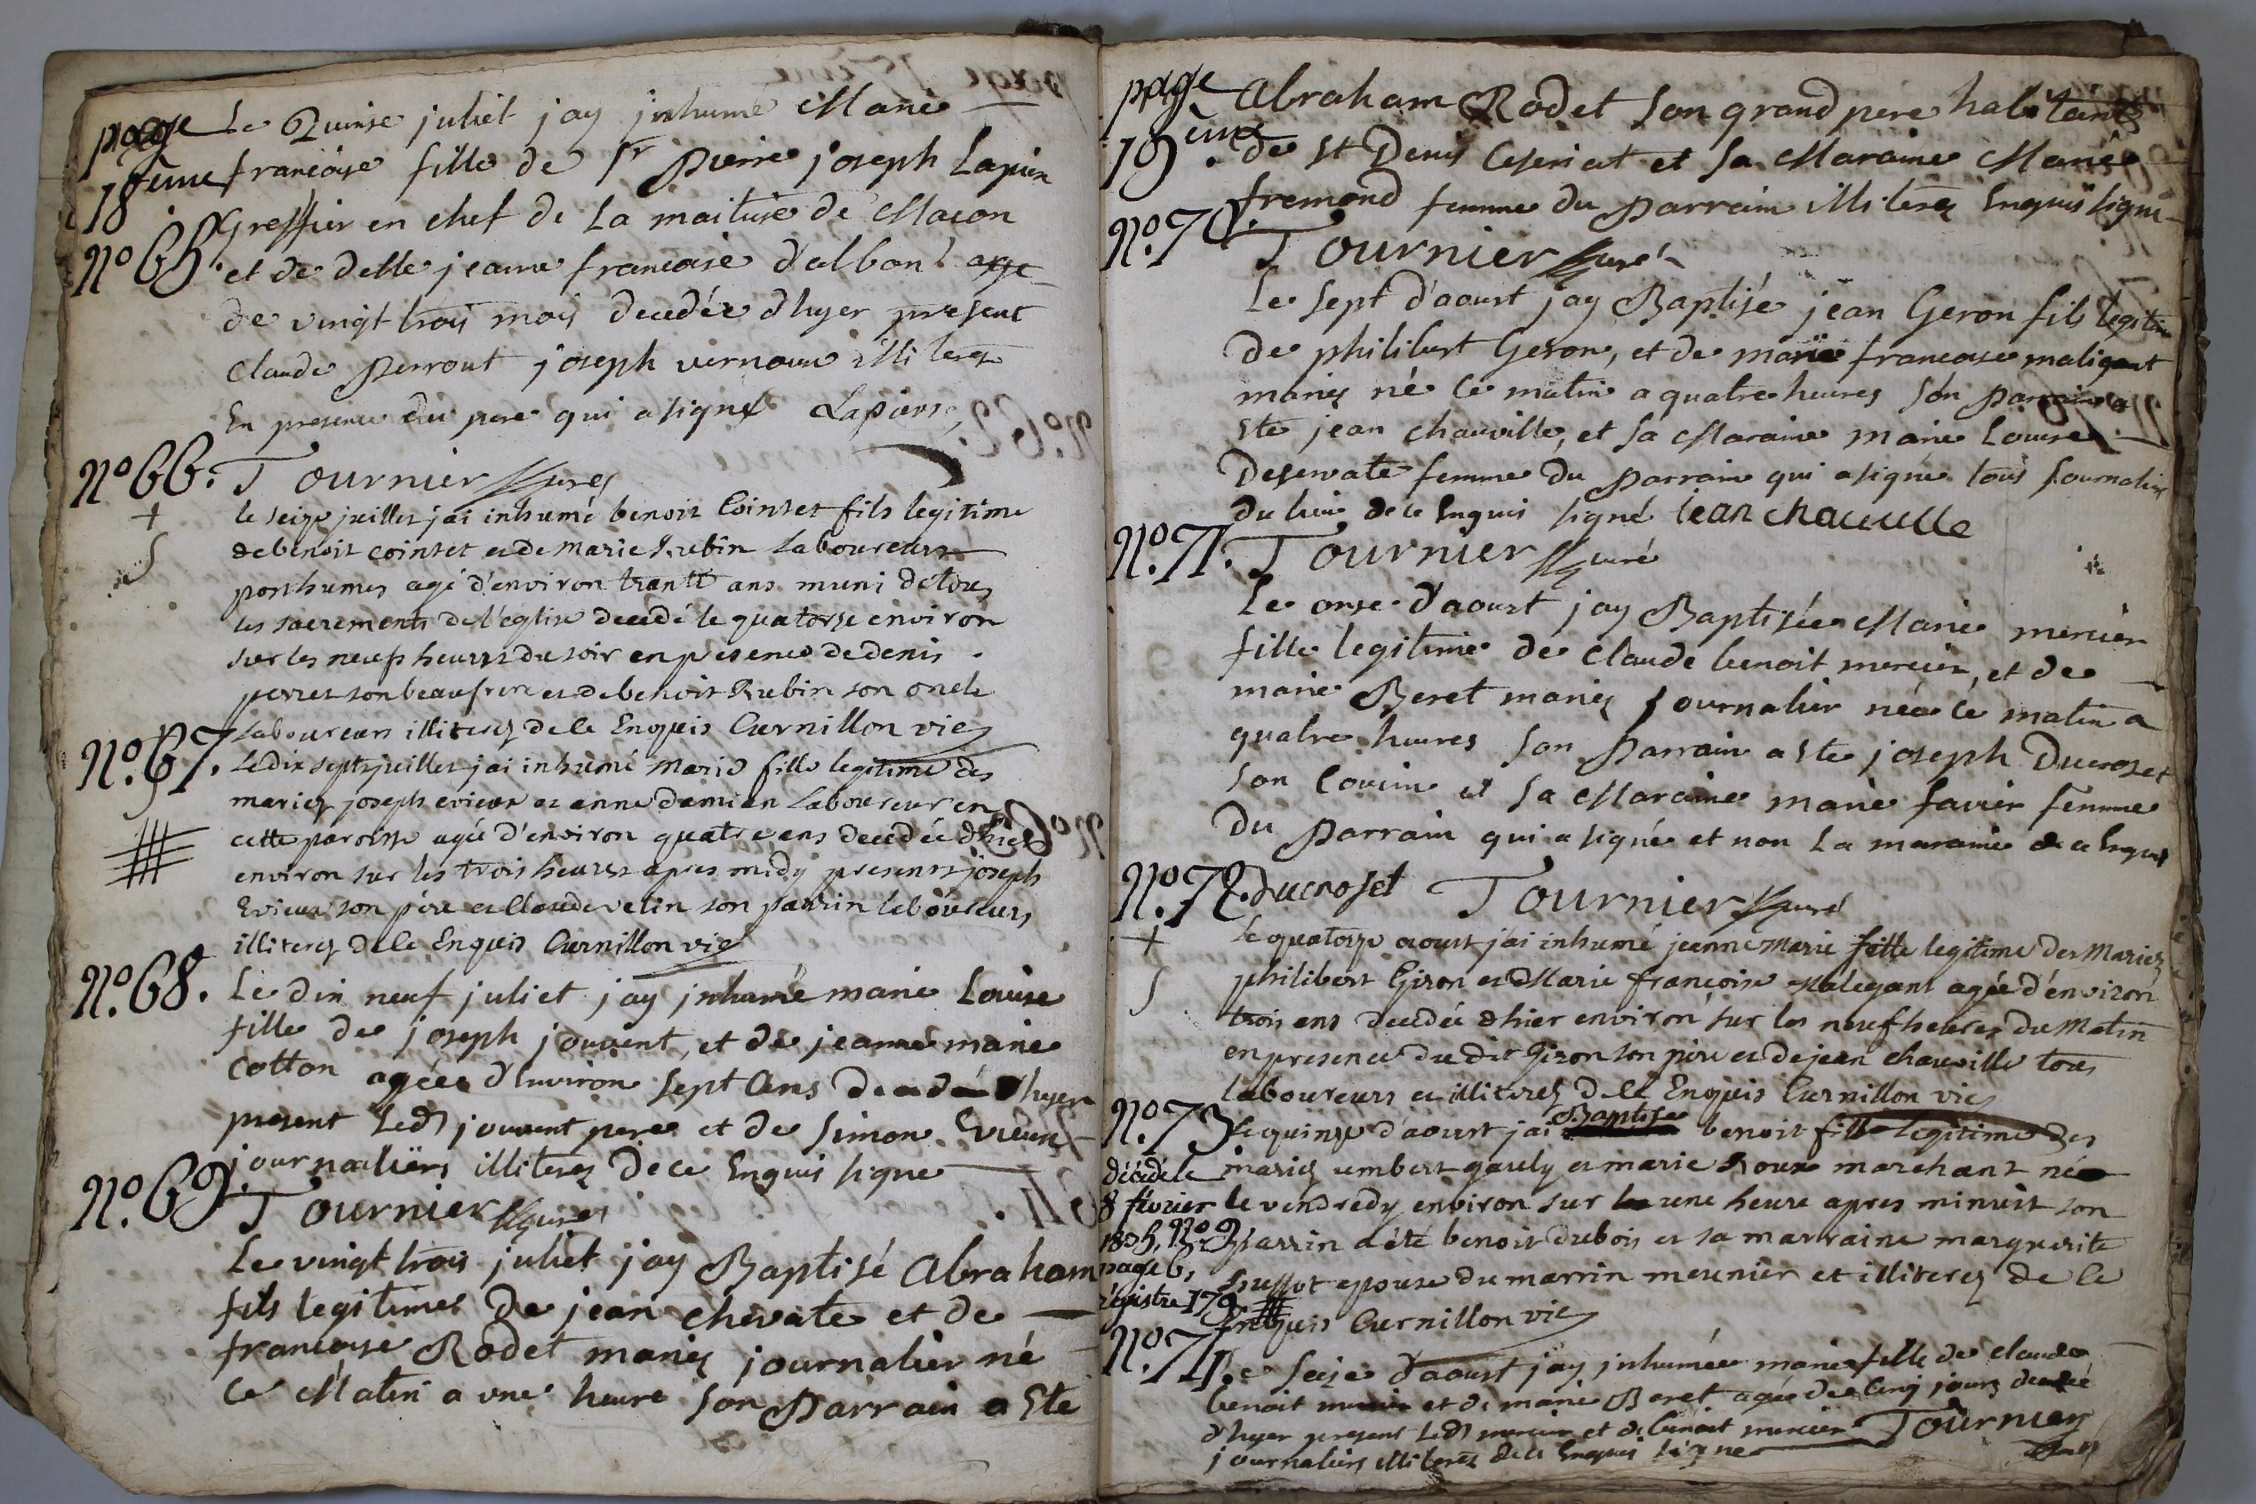 page
18eme
Le Quinse juliet jay inhumé Marie
francoise fille de Sr Pierre joseph Lapierre
Greffier en chef de La maitrise de Macon
No 65.
et de delle jeanne francoise d'albon agé
de vingt trois mois decedée d'hyer present
Claude Perrout joseph vernoux illiterez
En presence du pere qui a signé Lapierre
No 66. Tournier Curez
le seize juillet jai inhumé benoit Cointet fils legitime
de benoit cointet et de Marie Rubin Laboureurs
posthumes agé d'environ trantt ans muni de tous
les sacrements de l'eglise decedé le quatorse environ
sur les neufs heures du soir en presence de denis
perret son beaufrere et de benoit Rubin son oncle
Laboureurs illiterez de ce Enquis Curnillon vic
No. 67.
Le dix sept juillet jai inhumé Marie fille legitime des
mariez joseph evieux et anne damian Laboureur en
cette paroisse agée d'environ quatre ans decedée d'hier
environ sur les trois heures apres midy presents joseph
Evieux son père et Claude velin son parrin laboureurs
illiterez de ce Enquis Curnillon vic
No. 68. Le dix neuf juliet jay inhumé marie Louise
fille de joseph jouvent, et de jeanne marie
Cotton agée d'Environ sept Ans decedé d'hyer
present Ledt jouvent pere et de Simon Evieux
journaliers illiterez de ce Enquis signe
No. 69. Tournier Curez
Le vingt trois juliet jay Baptisé Abraham
fils legitimes de jean chevate et de
francoise Rodet mariez journalier né
Ce Matin a une heure son Parrain a Ste
page
19eme.
Abraham Rodet son grand pere habitant
de St Denis Ceseriat et sa Maraine Marie
fremond femme du Parrain illiterez Enquis signe
No. 70. Tournier Curé
Le sept d'aoust jay Baptisé jean Geron fils legitime
de philibert Geron, et de marie francoise maligant
mariez né Ce matin a quatre heures son parrain a
Ste jean chauville, et sa Maraine marie Louise
Deservate femme du Parrain qui a signé tous journaliers
du lieu de ce Enquis signé jean chauville
No. 71. Tournier Curé
Le onse d'aoust jay Baptisée Marie mercier
fille legitime de Claude benoit mercier, et de
marie Beret mariez journalier née ce matin a
quatre heures son Parrain a Ste joseph Ducroset
son Cousin et sa Maraine marie favier femme
du Parrain qui a signé et non La maraine de ce Enquis
No. 72. ducroset Tournier Curé
Le quatorze aoust jai inhumé jeanne Marie fille legitime des Mariez
philibert Giron et Marie françoise Malegant agée d'environ
trois ens decedée d'hier environ sur les neuf heures du Matin
en presence du dit Giron son père et de jean chauville tous
laboureurs et illiterez de ce Enquis Curnillon vic
No. 73
Le quinze d'aoust jai Baptisé benoit fils legitime des
décédé le
8 fevrier
1805, No. 9.
page 6,
régistre 179
mariez umbert gauly et marie Roux marchant né
le vendredy environ sur une heure apres minuit son
Parrin a été benoit dubois et sa marraine marguerite
epouse du marrin meunier et illiterez de ce
Enquis Curnillon vic
No. 74. Le Seize d'aoust jay inhumée marie fille de claude
benoit mercier et de marie Beret agée de Cinq jours decedé
d'hyer present Ledt mercier et de benoit mercier Tournier
journaliers illiterez de ce Enquis signe